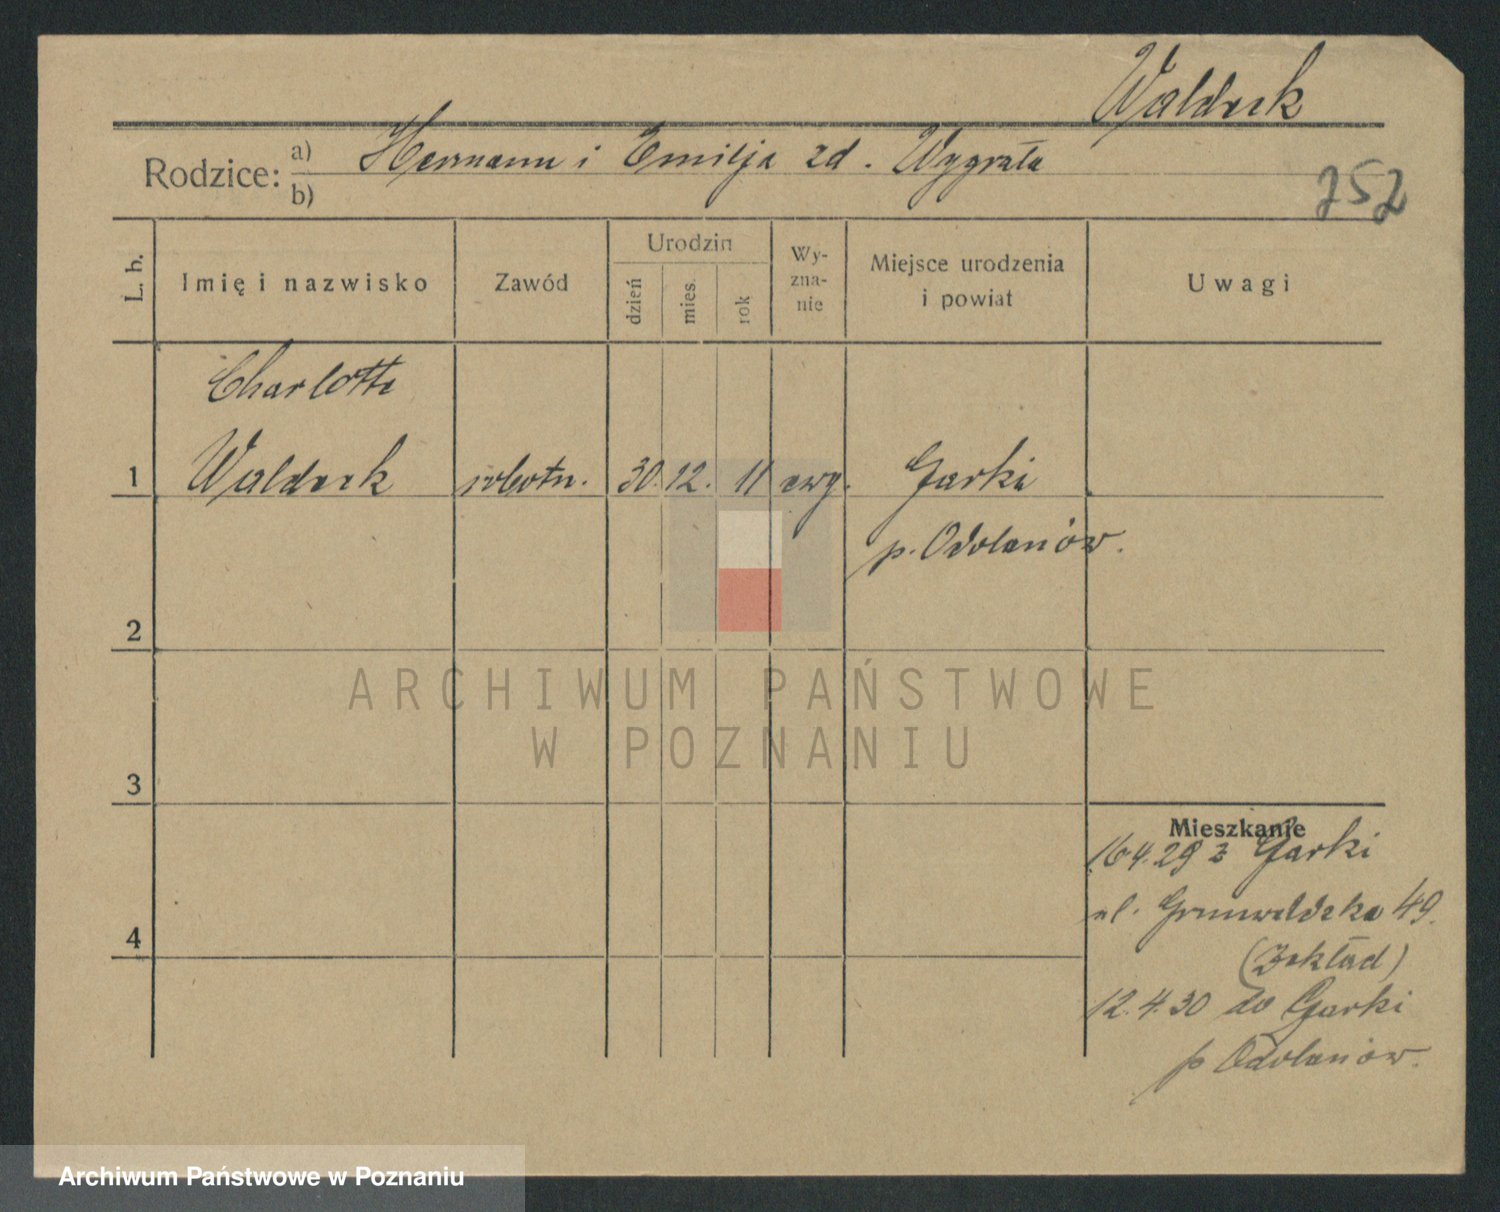 Waldeck
Rodzice: a) Hermann i Emilja zd. Wygrała
b)
252
L. b.
Imię i nazwisko
Zawód
Urodzin
dzień
mies.
rok
Wy-
zna-
nie
Miejsce urodzenia
i powiat
Uwagi
Charlotte
1 Waldeck robotn. 30. 12. 11 ewg. Garki
p. Odolanów.
2
3
4
Mieszkanie
16.4.29 z Garki
ul. Grunwaldzka 49.
(Zakład)
12.4.30 do Garki
p Odolanów.
ARCHIWUM PAŃSTWOWE
W POZNANIU
Archiwum Państwowe w Poznaniu